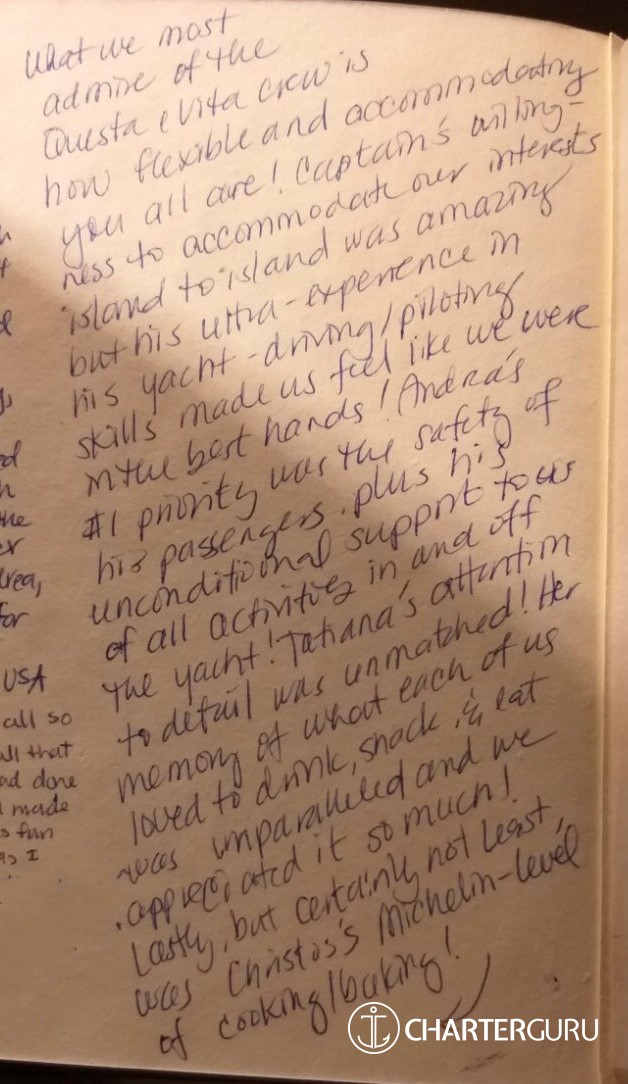 What we most
admire of the
Questa e Vita crew is
how flexible and accommodating
you all are! Captain's willing-
ness to accommodate our interests
island to island was amazing
but his ultra-experience in
his yacht-driving/piloting
skills made us feel like we were
in the best hands! Andrea's
#1 priority was the safety of
his passengers. plus his
unconditional support to us
of all activities in and off
the yacht! Tatiana's attention
to detail was unmatched! Her
memory of what each of us
loved to drink, snack, & eat
was unparalleled and we
appreciated it so much!
Lastly, but certainly not least,
was Christos's Michelin-level
of cooking/baking!
the
USA
all so
all that
done
made
fun
I
CHARTERGURU